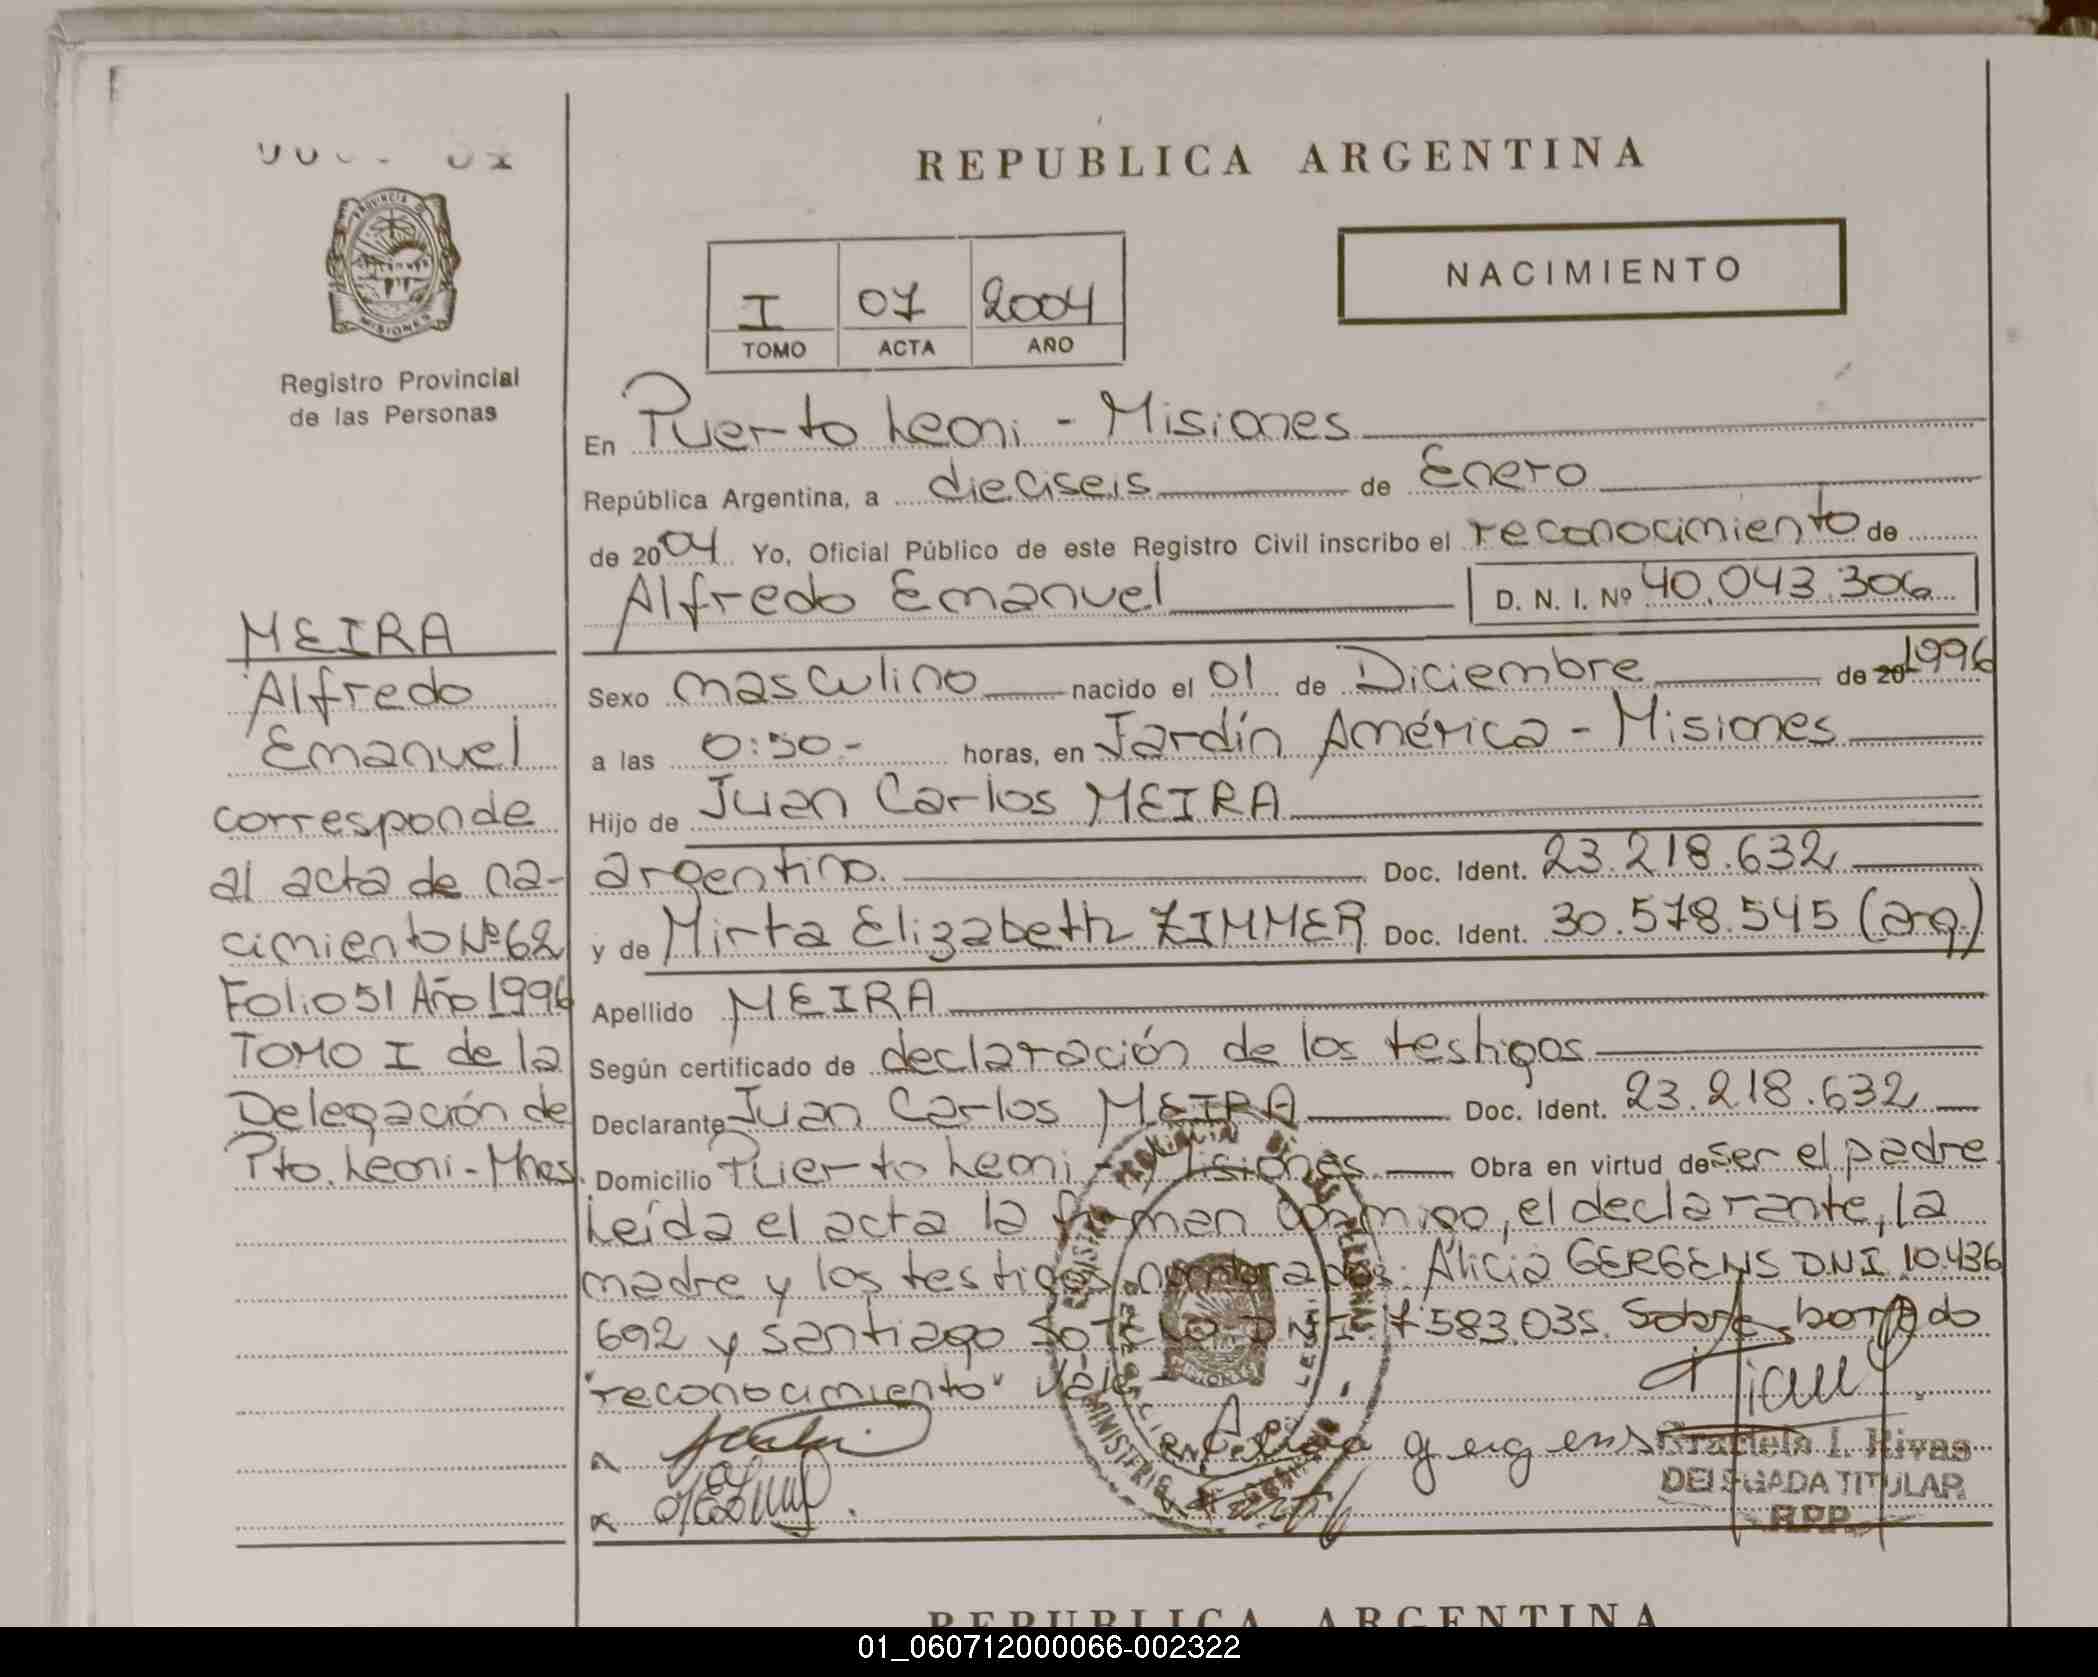 REPUBLICA ARGENTINA
PROVINCIA DE
MISIONES
Registro Provincial
de las Personas
NACIMIENTO
I 07 2004
TOMO ACTA AÑO
En Puerto Leoni - Misiones
República Argentina, a dieciseis de Enero
de 2004 Yo, Oficial Público de este Registro Civil inscribo el reconocimiento de
Alfredo Emanuel D. N. I. Nº 40.043.306
Sexo masculino nacido el 01 de Diciembre de 20 1996
a las 0:50- horas, en Jardín América - Misiones
Hijo de Juan Carlos MEIRA
argentino. Doc. Ident. 23.218.632
y de Mirta Elizabeth ZIMMER Doc. Ident. 30.578.545 (arg.)
Apellido MEIRA
Según certificado de declaración de los testigos
Declarante Juan Carlos MEIRA Doc. Ident. 23.218.632
Domicilio Puerto Leoni - Misiones Obra en virtud de ser el padre
Leída el acta la firman conmigo, el declarante, la
madre y los testigos nombrados: Alicia GERGENS DNI 10.436
692 y Santiago SOTELO DNI 7583.035. Sobre borrado
"reconocimiento" Vale
MEIRA
Alfredo
Emanuel
corresponde
al acta de na-
cimiento Nº 62
Folio 51 Año 1996
TOMO I de la
Delegación de
Pto. Leoni - Mnes.
gergens
Graciela I. Rivas
DELEGADA TITULAR
RPP
REPUBLICA ARGENTINA
01_060712000066-002322